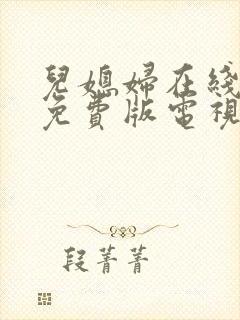 兒媳婦在綫
免費版電視
段菁菁